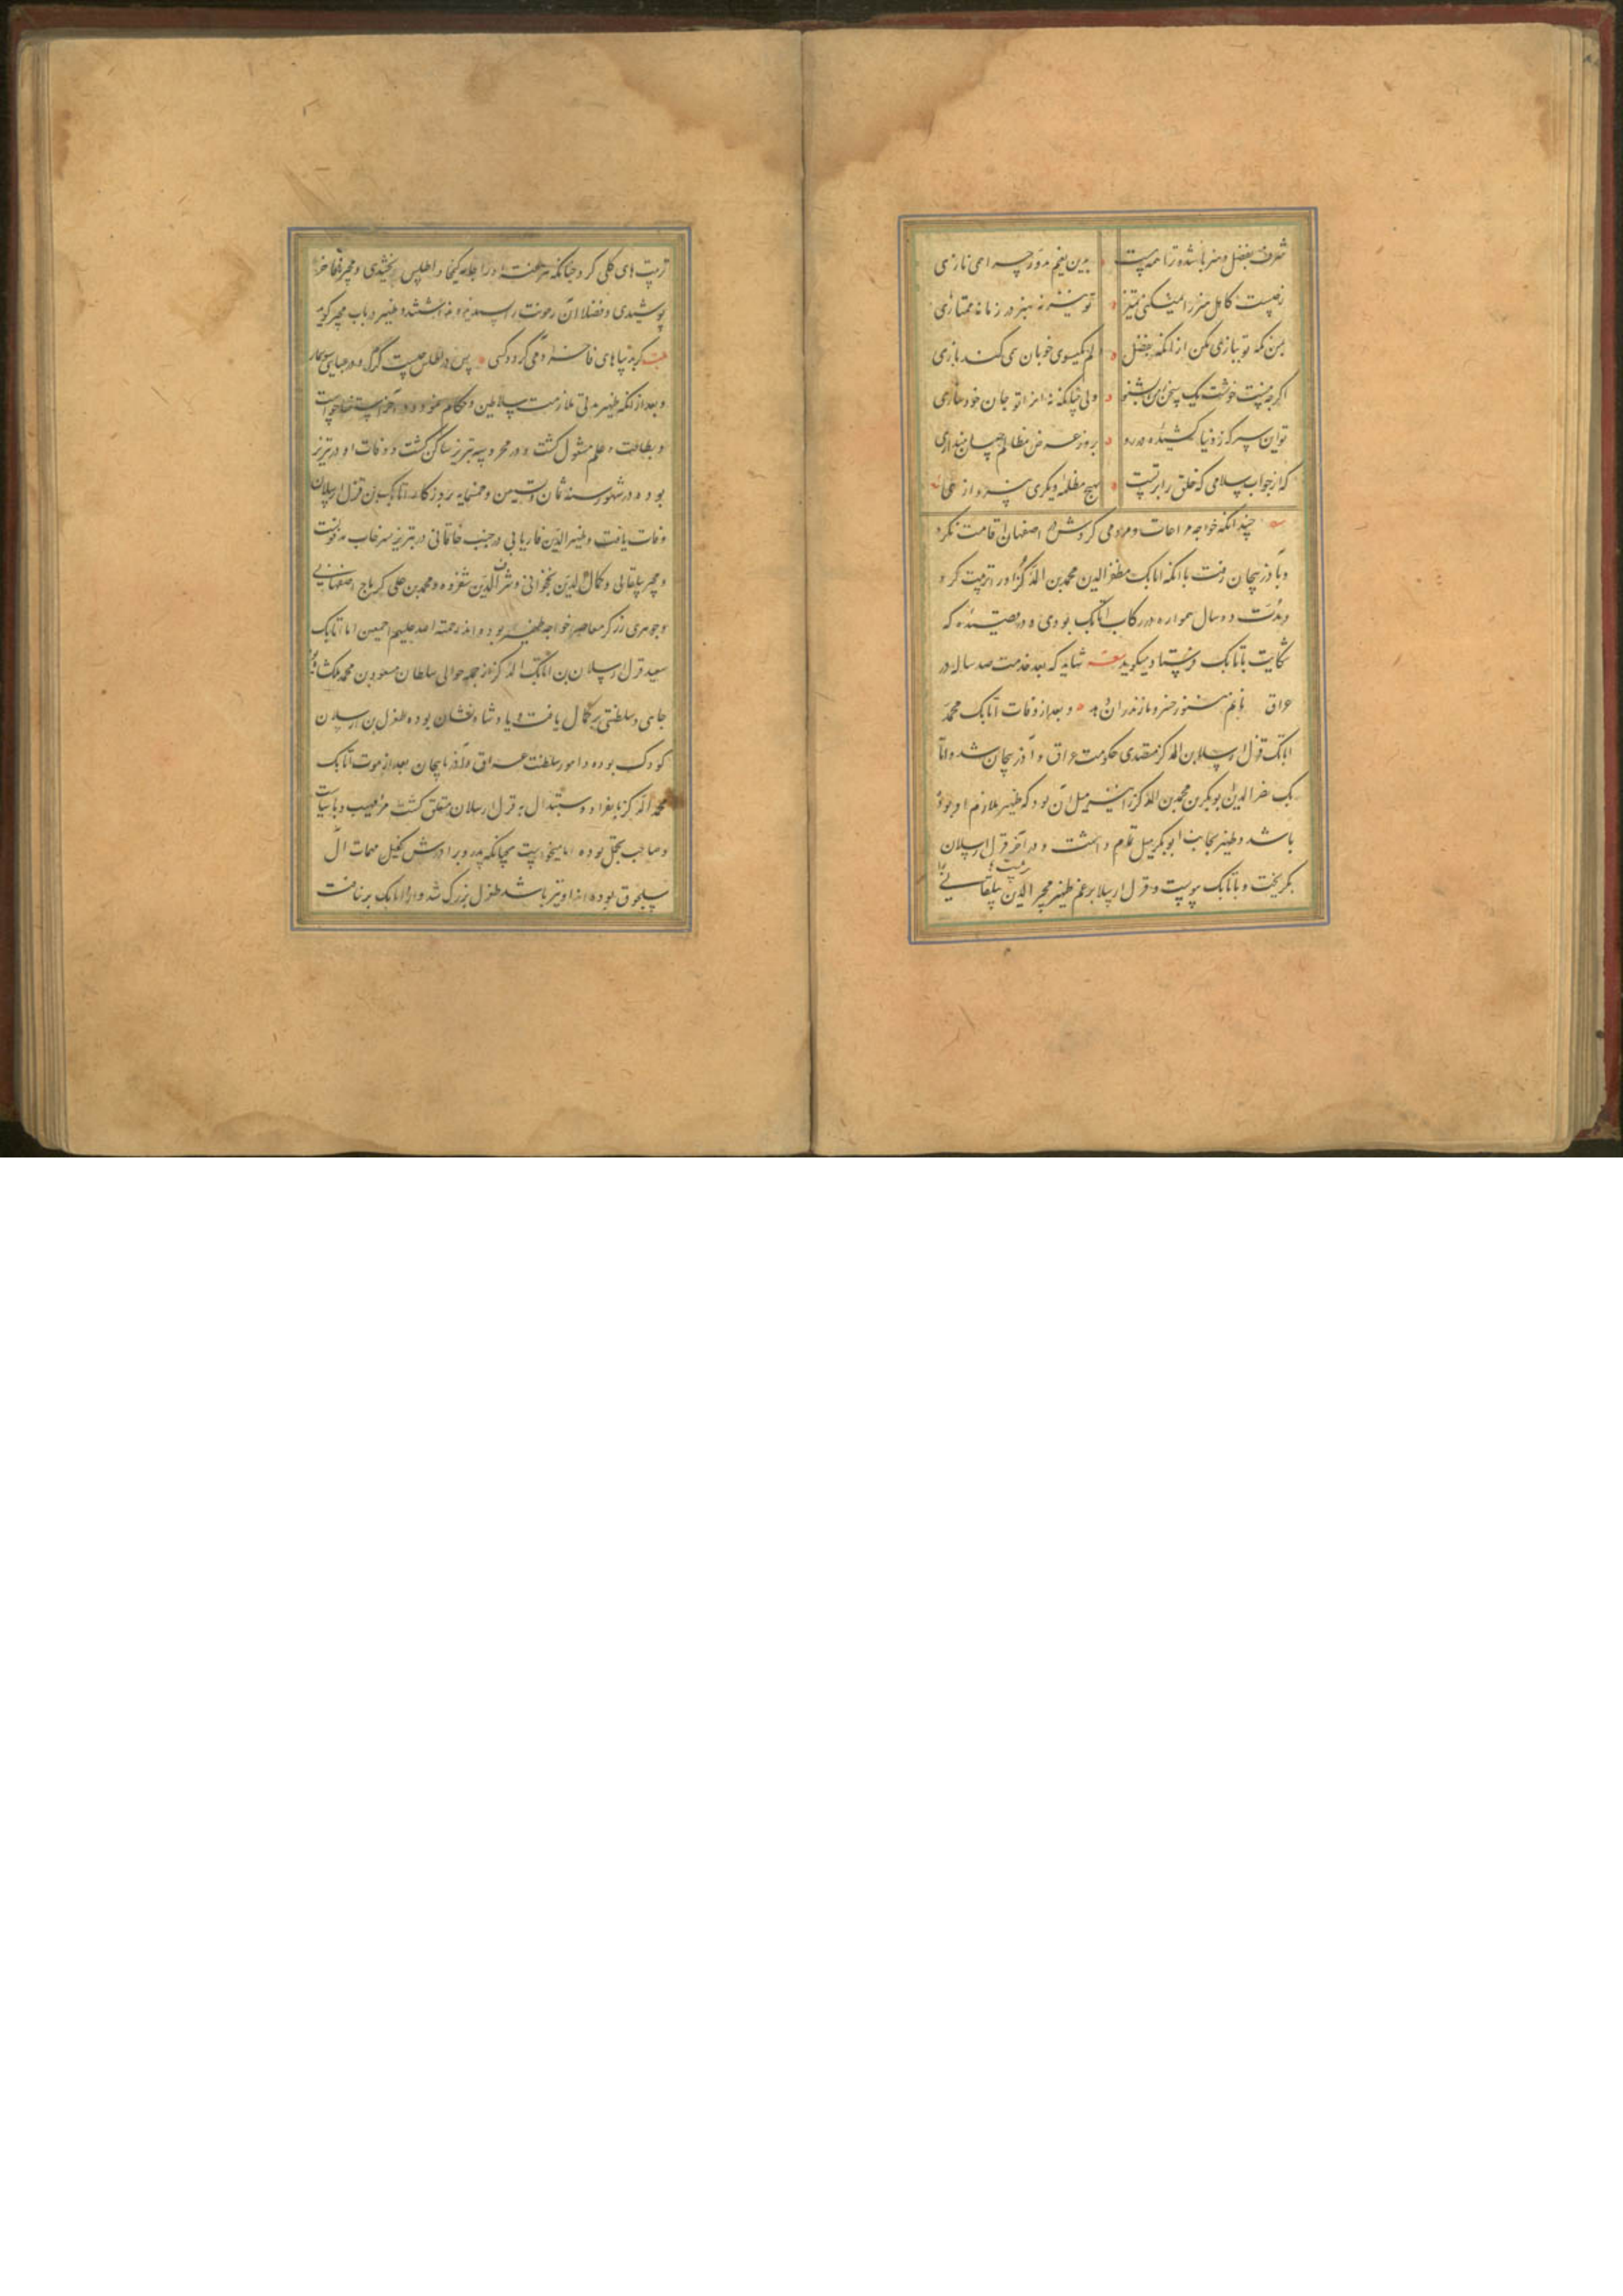 شرف بفضل و هنر باشد و ترا همه هست بدین نعیم مزور چرا همی نازی
ز چیست کاهل هنر را نمیکنی تمیز تو نیز نه بهنر در زمانه ممتازی
بمن نگه تو ببازی مکن از آنکه بفضل دلم بگیسوی خوبان نمی کند بازی
اگرچه نیست خوشت یک سخن ز من بشنو ولی چنانکه نه انرا تو جان خود سازی
تو این سپر که ز دنیا کشیده در رو بروز عرض مظالم چسان بیندازی
که از جواب سلامی که خلق را بر تست بهیچ مظلمه دیگری نپردازی
چندانکه خواجه مراعات و مردمی کردش در اصفهان اقامت نکرد
و باذربیجان رفت باانکه اتابک مظفرالدین محمد بن الدگز او را تربیت کرد
و مدت ده سال همواره در رکاب اتابک بودی و در قصیده که
شکایت باتابک فرستاد میگوید شاید که بعد خدمت صد ساله در
عراق نانم هنوز خسرو مازندران دهد و بعد از وفات اتابک محمد
اتابک قزل ارسلان بن الدگز متصدی حکومت عراق و آذربیجان شد و اتا
بک نصرالدین ابوبکر بن محمد بن الدگز را نیز میل آن بود که ظهیر ملازم او بوده
باشد و ظهیر بجانب ابوبکر میل تمام داشت و در آخر از قزل ارسلان
بگریخت و باتابک پیوست و قزل ارسلان برغم ظهیر مجیر الدین بیلقانی را تربیت
تربیت های کلی کرد چنانکه هر هفت او را جامه کمخا و اطلس بخشیدی و مجیر آن فاخر
پوشیدی و فضلا آن رعونت را پسندیده نداشتند و ظهیر در باب مجیر گوید
بیت گر بدیباهای فاخر آدمی گردد کسی پس در اطلس چیست گرگ و در عبایی سوسمار
و بعد از انکه ظهیر مدتی ملازمت سلاطین و حکام نمود در آخر استعفا خواست
و بطاعت و علم مشغول گشت و در محروسه تبریز ساکن گشت و وفات او در تبریز
بوده در شهور سنه ثمان و تسعین و خمسمایه بروزگار اتابک بن قزل ارسلان
وفات یافت و ظهیرالدین فاریابی در جنب خاقانی در تبریز سرخاب مدفونست
و مجیر بیلقانی و کمال الدین نخجوانی و شرف الدین شفروه و محمد بن علی کرباج اصفهانی
و جوهری زرگر معاصر خواجه ظهیر بوده اند رحمة الله علیهم اجمعین اما اتابک
سعید قزل ارسلان بن اتابک الدگز از جمله موالی سلطان مسعود بن محمد ملکشاه بوده
جاهی و سلطنتی بر کمال یافت و پادشاه نشان بوده طغرل بن ارسلان
کودک بوده و امور سلطنت عراق و آذربایجان بعد از موت اتابک
محمد الدگز بانفراد و استبداد به قزل ارسلان متعلق گشت مرد مهیب و با سیاست
و صاحب تجمل بوده اما میخواست همچانکه پدر و برادرش کفیل مهمات آل
سلجوق بوده اند او نیز باشد طغرل بزرگ شد و از اتابک بر تافت